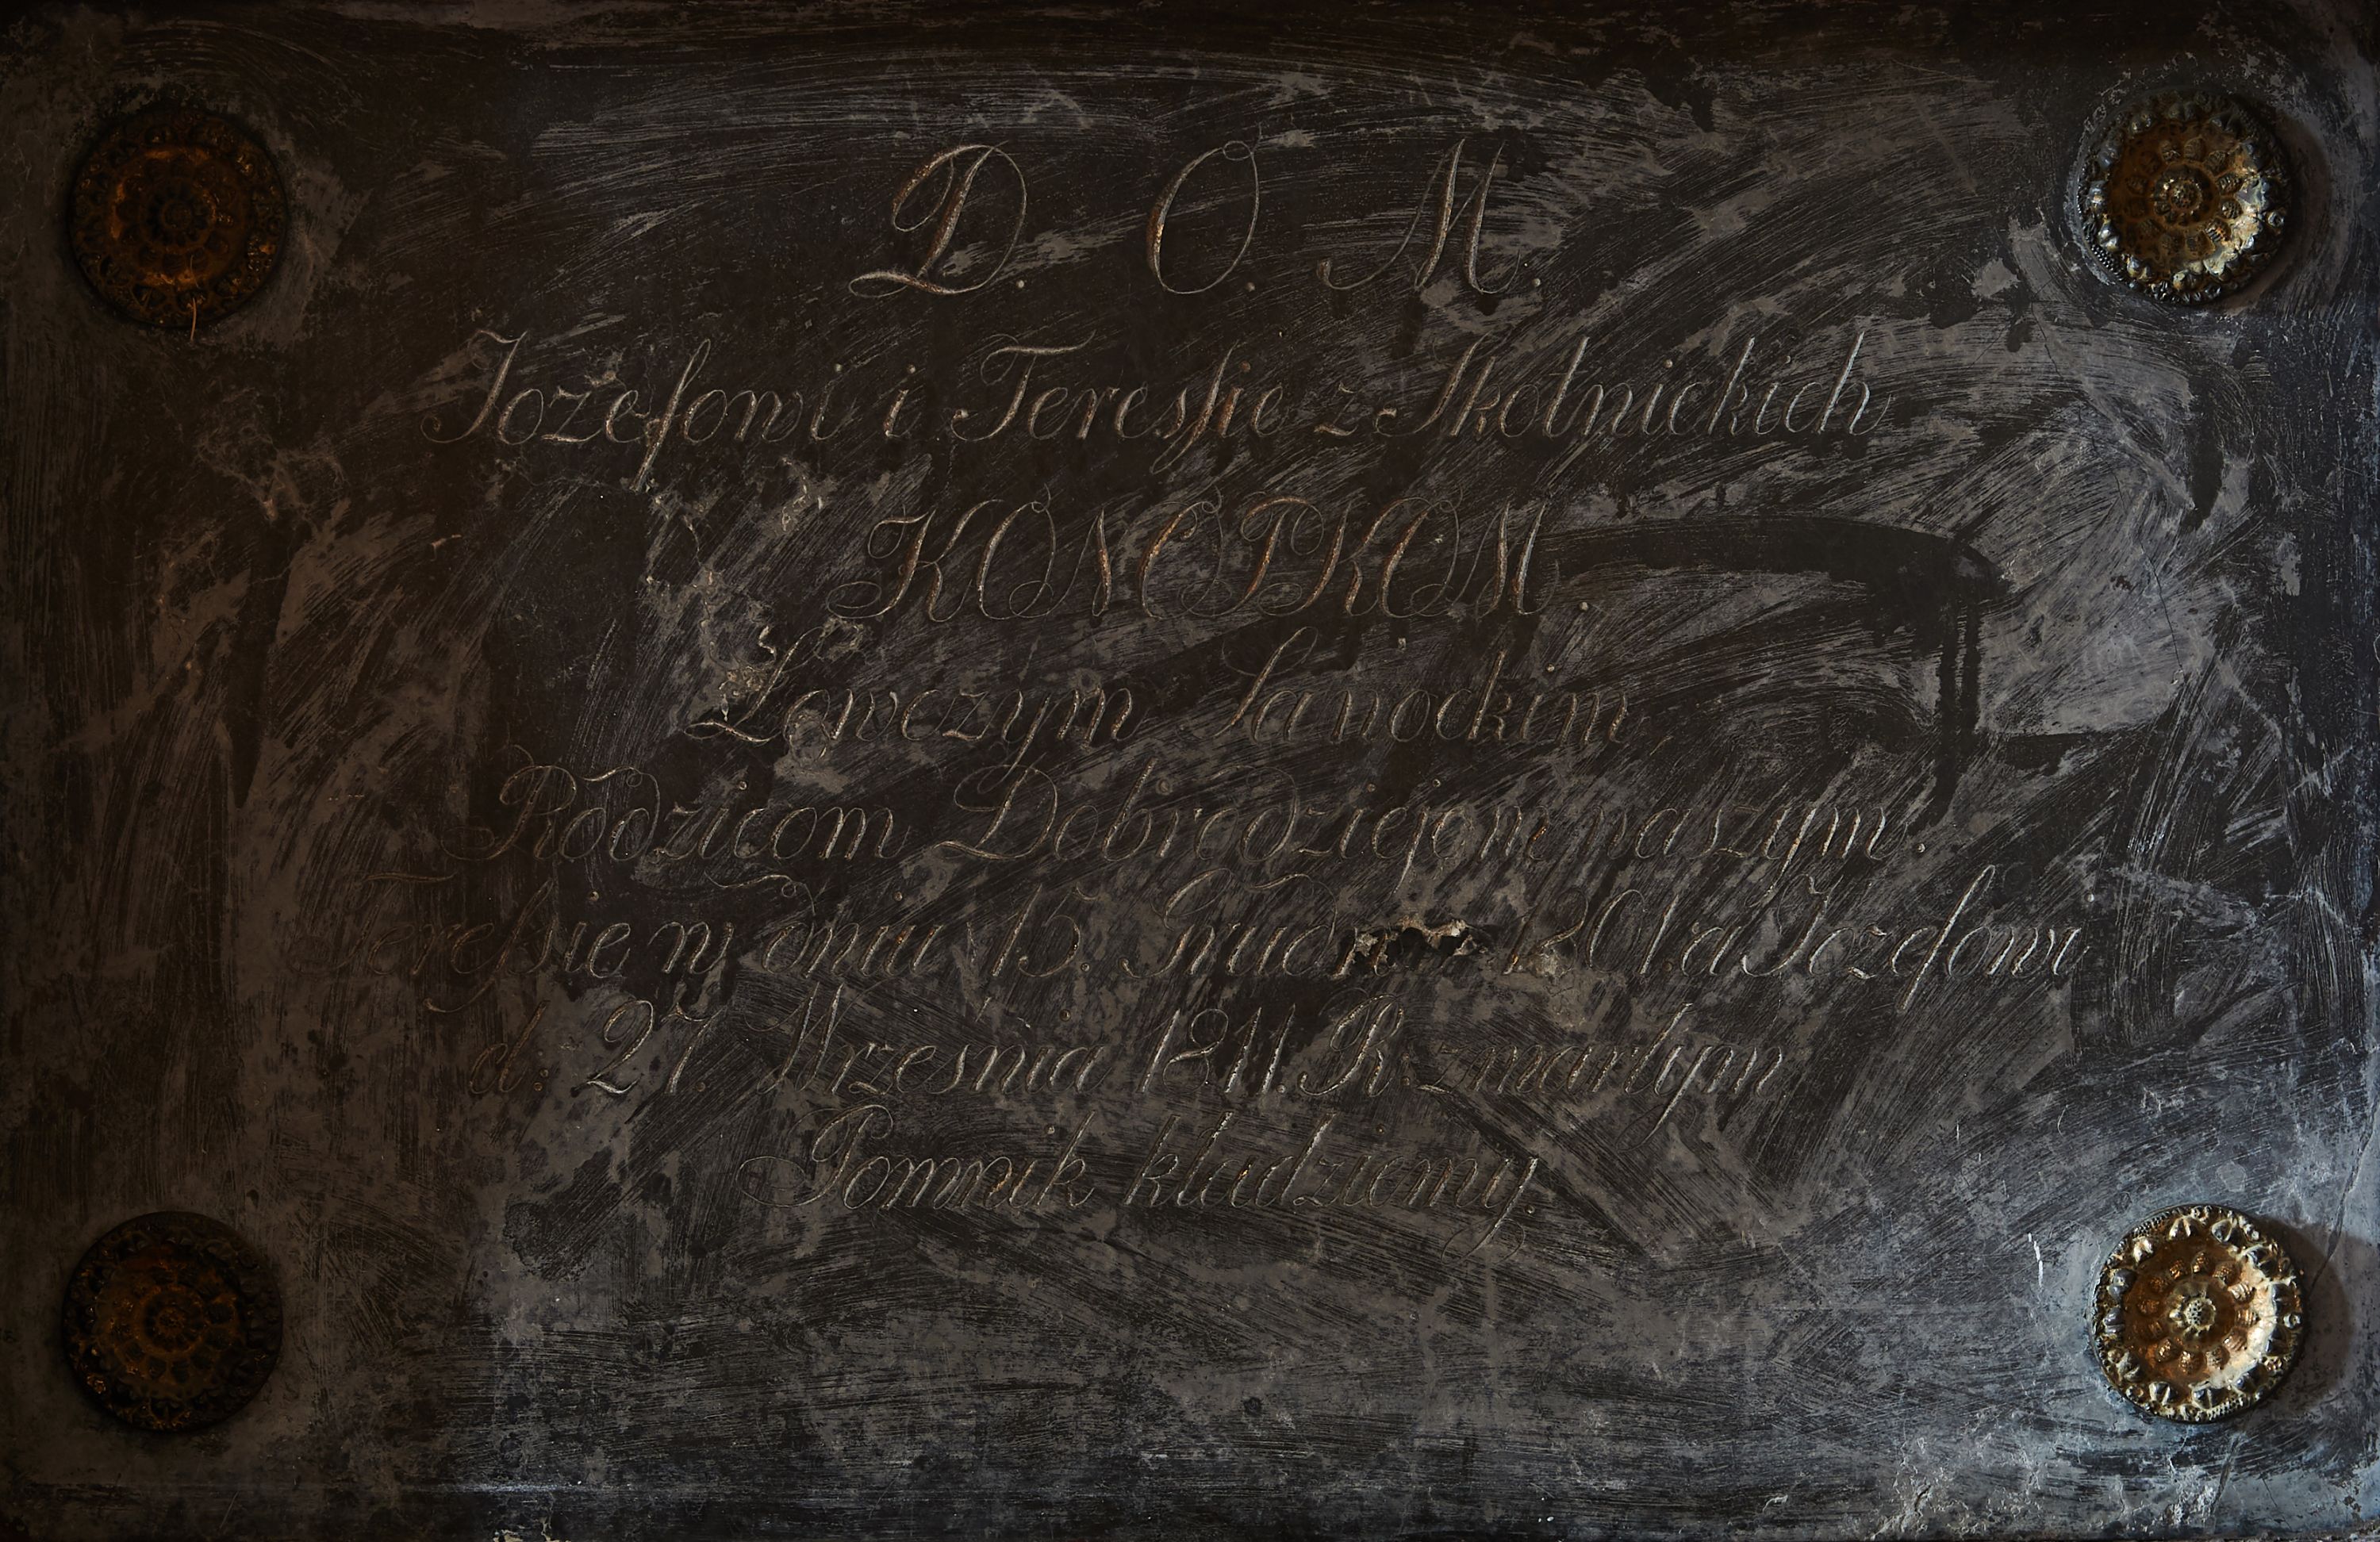 D. O. M.
Jozefowi i Teressie z Skotnickich
KONOPKOM.
Łowczym Sanockim,
Rodzicom Dobrodziejom naszym.
Teressie w dniu 15. 1801. a Jozefowi
d: 27. Wrzesnia 1811. R: zmarłym
Pomnik kładziemy.